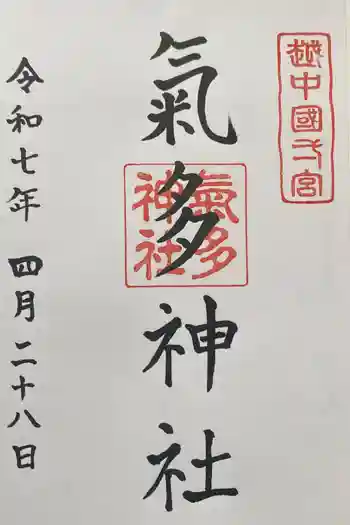 越中國一宮
氣多神社
氣多神社
令和七年 四月二十八日